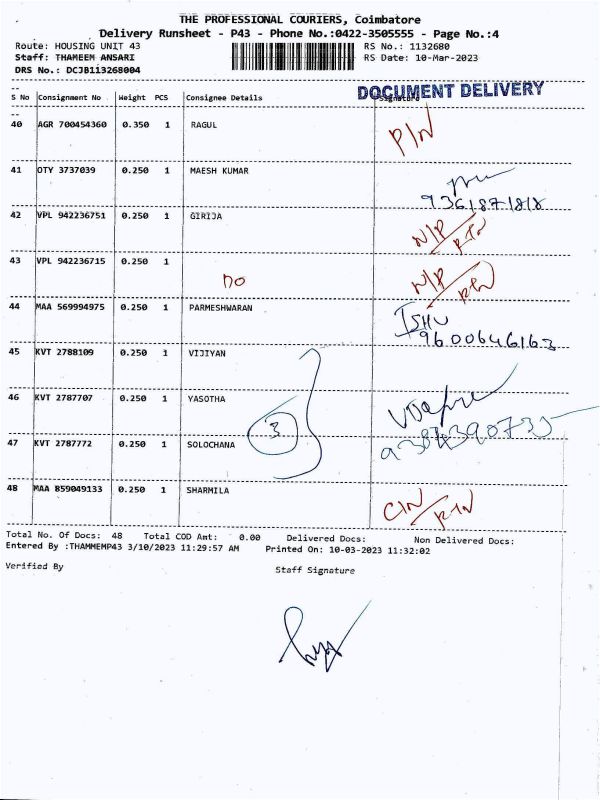 THE PROFESSIONAL COURIERS, Coimbatore
Delivery Runsheet - P43 - Phone No.:0422-3505555 - Page No.:4
Route: HOUSING UNIT 43 RS No.: 1132680
Staff: THAMEEM ANSARI RS Date: 10-Mar-2023
DRS No.: DCJB113268004
DOCUMENT DELIVERY
S No Consignment No Weight PCS Consignee Details Signature
40 AGR 700454360 0.350 1 RAGUL
P/N
41 OTY 3737039 0.250 1 MAESH KUMAR
9361871818
42 VPL 942236751 0.250 1 GIRIJA
N/P
RTN
43 VPL 942236715 0.250 1
DO N/P
RTN
44 MAA 569994975 0.250 1 PARMESHWARAN
ISHU
9600646163
45 KVT 2788109 0.250 1 VIJIYAN
46 KVT 2787707 0.250 1 YASOTHA
3
47 KVT 2787772 0.250 1 SOLOCHANA
48 MAA 859049133 0.250 1 SHARMILA
C/N
RTN
Total No. Of Docs: 48 Total COD Amt: 0.00 Delivered Docs: Non Delivered Docs:
Entered By :THAMMEMP43 3/10/2023 11:29:57 AM Printed On: 10-03-2023 11:32:02
Verified By Staff Signature